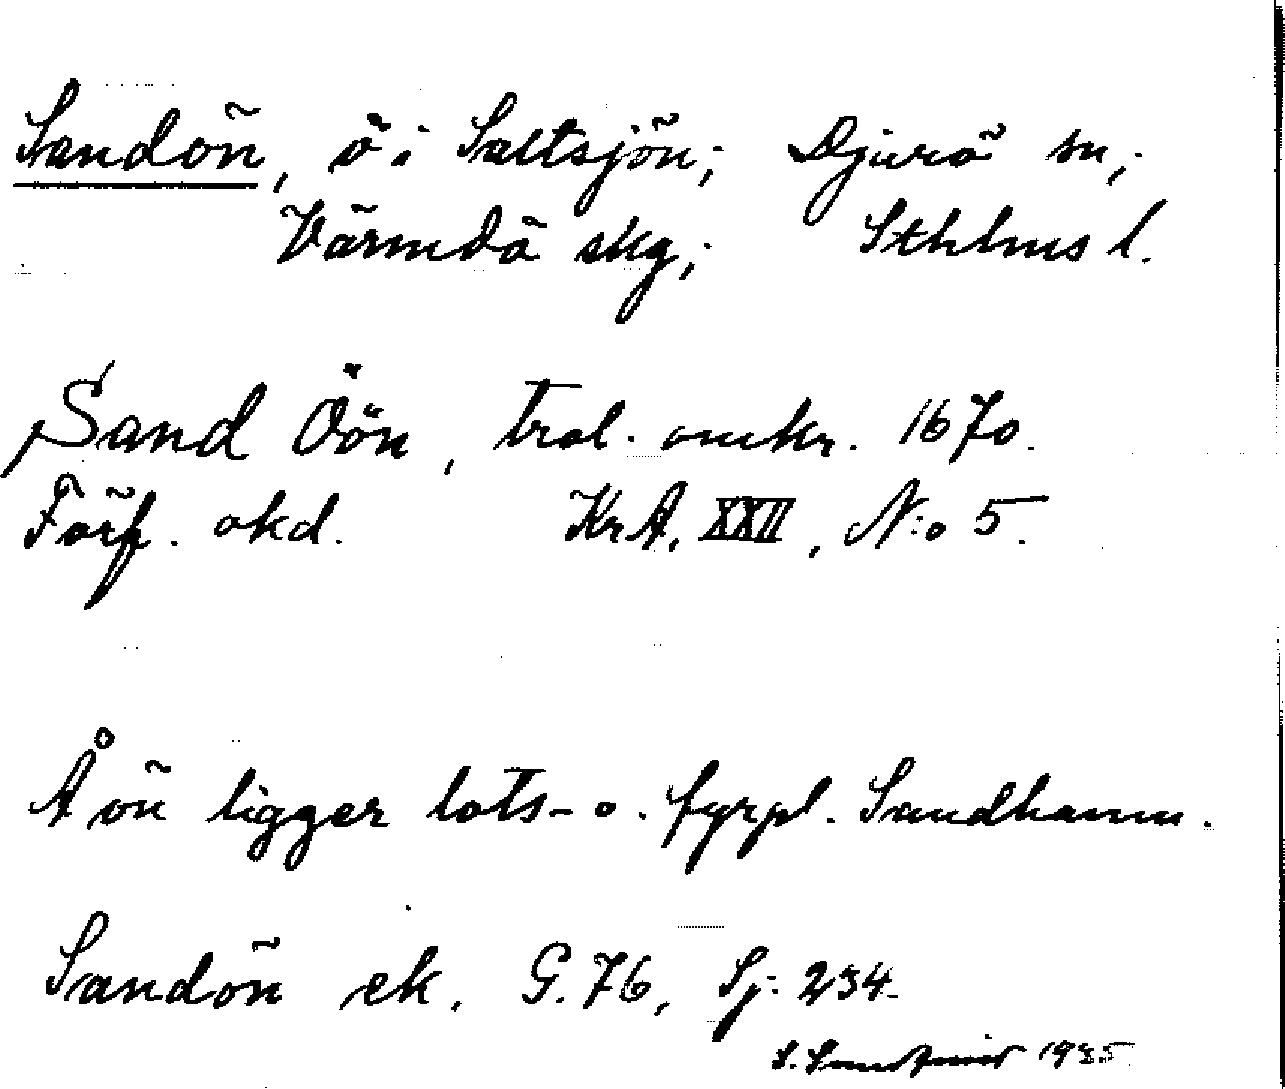 Sandön, ö i Saltsjön; Djurö sn,;
Värmdö skg,; Sthlms l.
Sand Öön, trol. omkr. 1670.
Förf. okd. KrA, XXII, N:o 5.
Å ön ligger lots- o. fyrpl. Sandhamn.
Sandön ek. G. 76, Sj: 234.
S. 1935